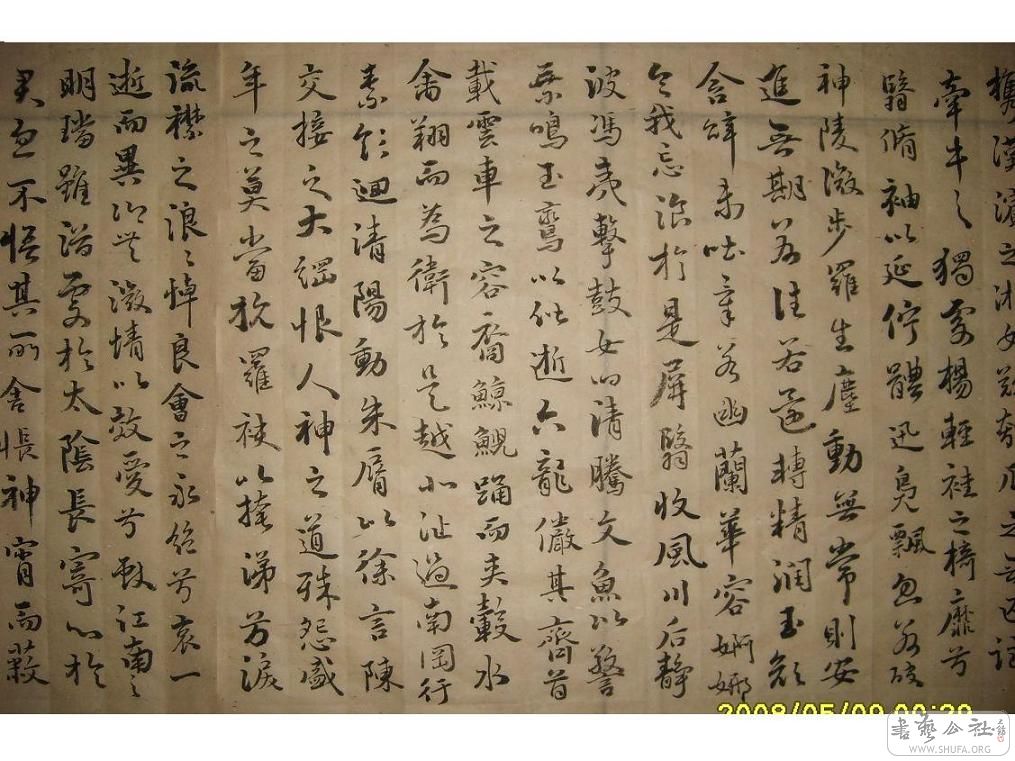 攜漢濱之游女歎匏瓜之無匹詠
牽牛之獨處揚輕袿之猗靡兮
翳脩袖以延佇體迅鳧飄忽若
神陵微步羅生塵動無常則若安
進無期若往若還轉精潤玉顏
含辭未吐氣若幽蘭華容婀娜
令我忘湌於是屏翳收風川后靜
波馮夷擊鼓女媧清騰文魚以警
乘鳴玉鸞以偕逝六龍儼其齊首
載雲車之容裔鯨鯢踊而夾轂水
禽翔而為衛於是越北沚過南岡紆
素領迴清陽動朱脣以徐言陳
交接之大綱恨人神之道殊怨盛
年之莫當抗羅袂以掩涕兮淚
流襟之浪浪悼良會之永絕兮哀一
逝而異鄉無微情以效愛兮獻江南之
明璫雖潛處於太陰長寄心於
君王忽不悟其所舍悵神宵而蔽
2008/05/09 00:29
書藝公社
WWW.SHUFA.ORG